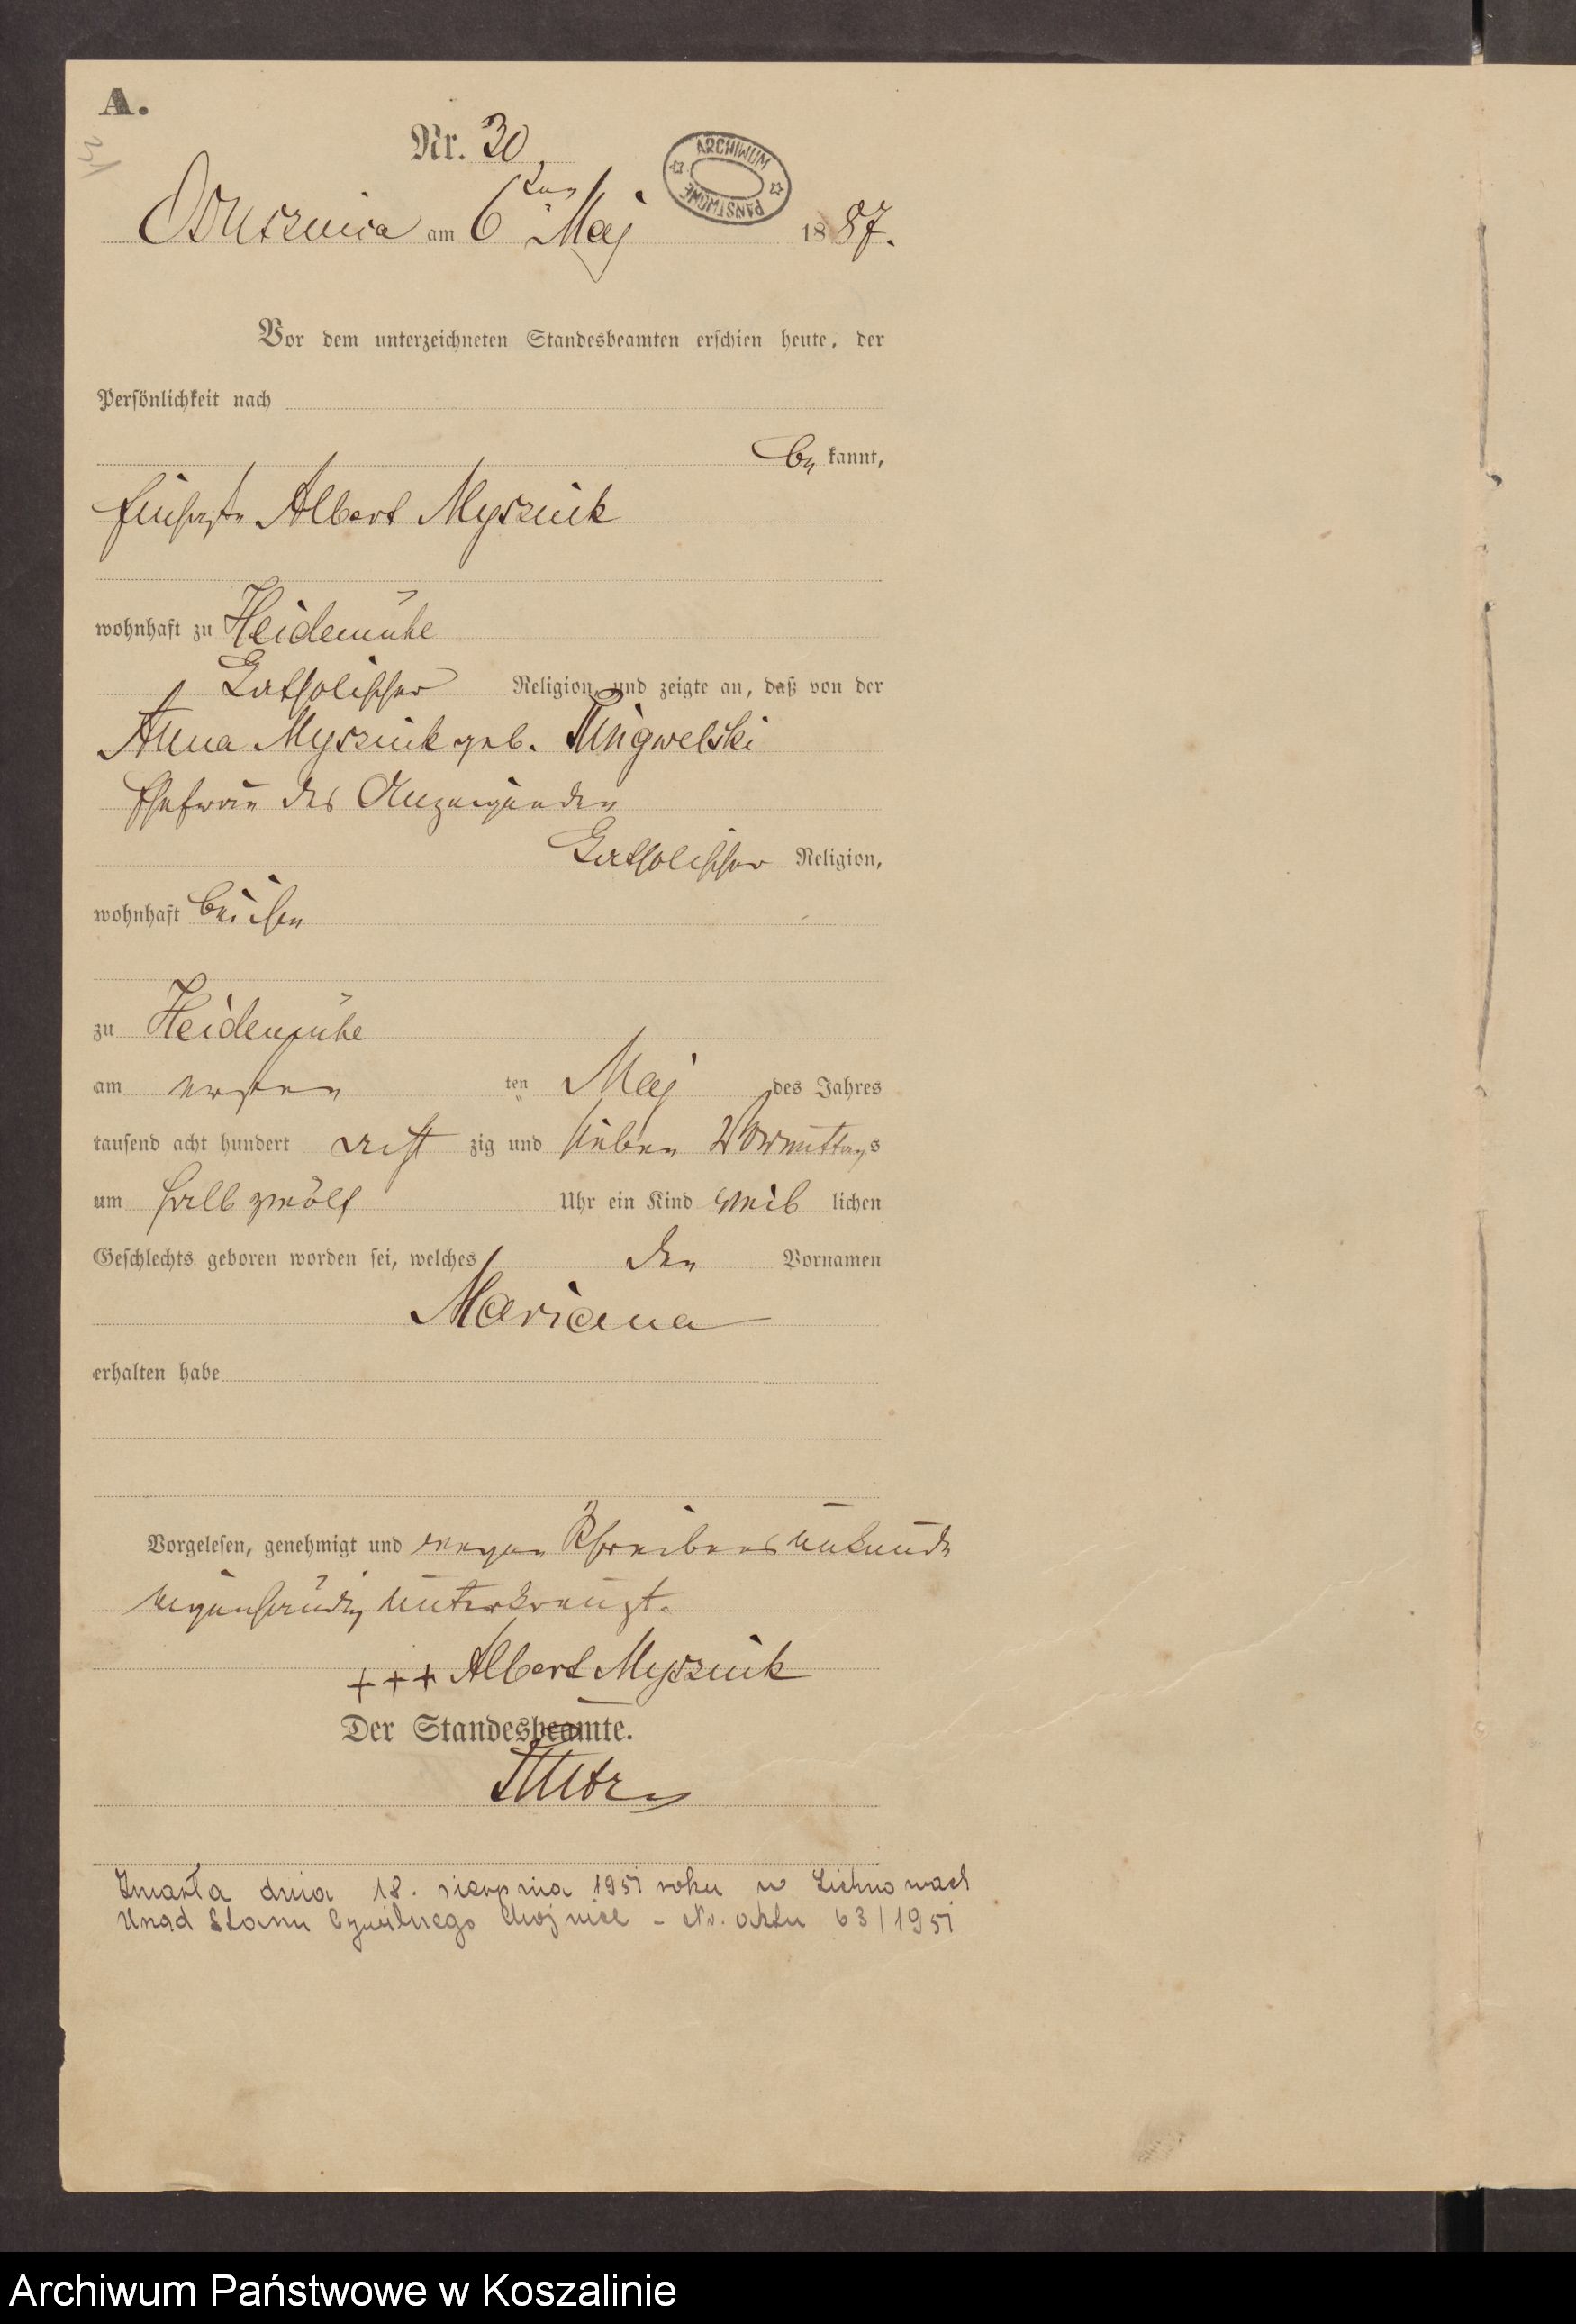 A.
Nr. 30
ARCHIWUM PAŃSTWOWE
Ossusznica am 6ten Maj 1887.
Vor dem unterzeichneten Standesbeamten erschien heute, der
Persönlichkeit nach
be kannt,
Albert Myszink
wohnhaft zu Heidemühe
Katholischer Religion, und zeigte an, daß von der
Anna Myszink geb. Ringwelski
Ehefrau des Anzeigenden
Katholischer Religion,
wohnhaft bei ihm
zu Heidemühe
am ersten ten Maj des Jahres
tausend acht hundert acht zig und sieben Vormittags
um halb zwölf Uhr ein Kind weib lichen
Geschlechts geboren worden sei, welches den Vornamen
Mariana
erhalten habe
Vorgelesen, genehmigt und wegen Schreibensunkunde
eigenhändig unterkreuzt.
+++ Albert Myszink
Der Standesbeamte.
Zmarła dnia 18. sierpnia 1951 roku w Lichnowach
Urząd Stanu Cywilnego Chojnice - Nr. aktu 63/1951
Archiwum Państwowe w Koszalinie